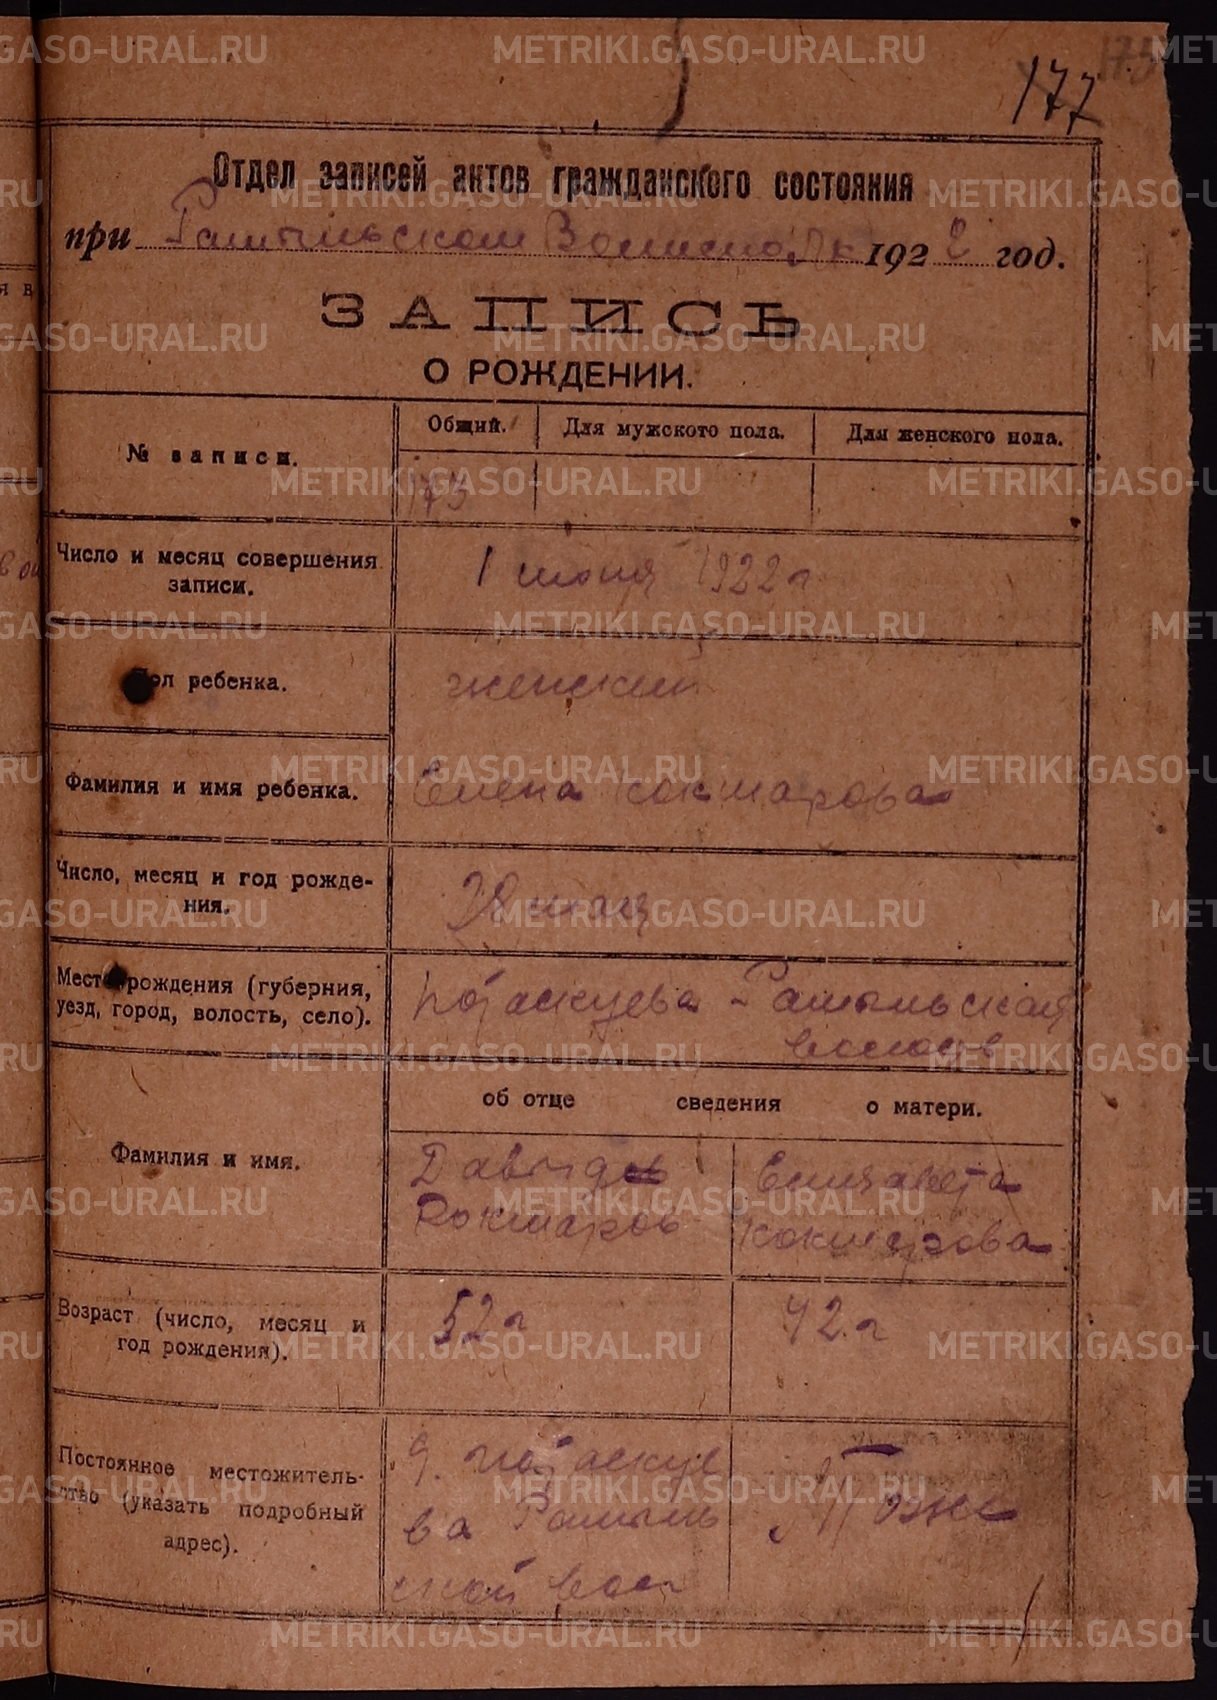 177
Отдел записей актов гражданского состояния
при Рамыльском Волисполк 1922 год.
ЗАПИСЬ
О РОЖДЕНИИ.
№ записи.
Общий. Для мужского пола. Для женского пола.
173
Число и месяц совершения записи.
1 июня 1922 г
Пол ребенка.
женский
Фамилия и имя ребенка.
Елена Кокшарова
Число, месяц и год рождения.
мая
Место рождения (губерния, уезд, город, волость, село).
Потаскуева Рамыльская
волость
об отце сведения о матери.
Фамилия и имя.
Давыд
Кокшаров
Елизавета
Кокшарова
Возраст (число, месяц и год рождения).
52 г
42 г
Постоянное местожительство (указать подробный адрес).
д. Потаскуе
ва Рамыль
ской вол
Тоже
METRIKI.GASO-URAL.RU